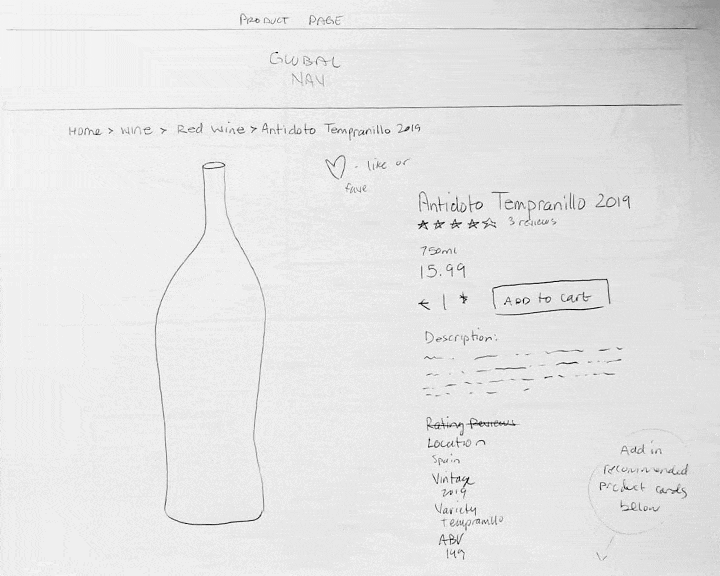 PRODUCT PAGE
GLOBAL
NAV
Home > Wine > Red Wine > Antidoto Tempranillo 2019
- like or
fave
Antidoto Tempranillo 2019
3 reviews
750ml
15.99
← 1 →
ADD to cart
Description:
Rating Reviews
Location
Spain
Vintage
2019
Variety
Tempranillo
ABV
Add in
recommended
product cards
below